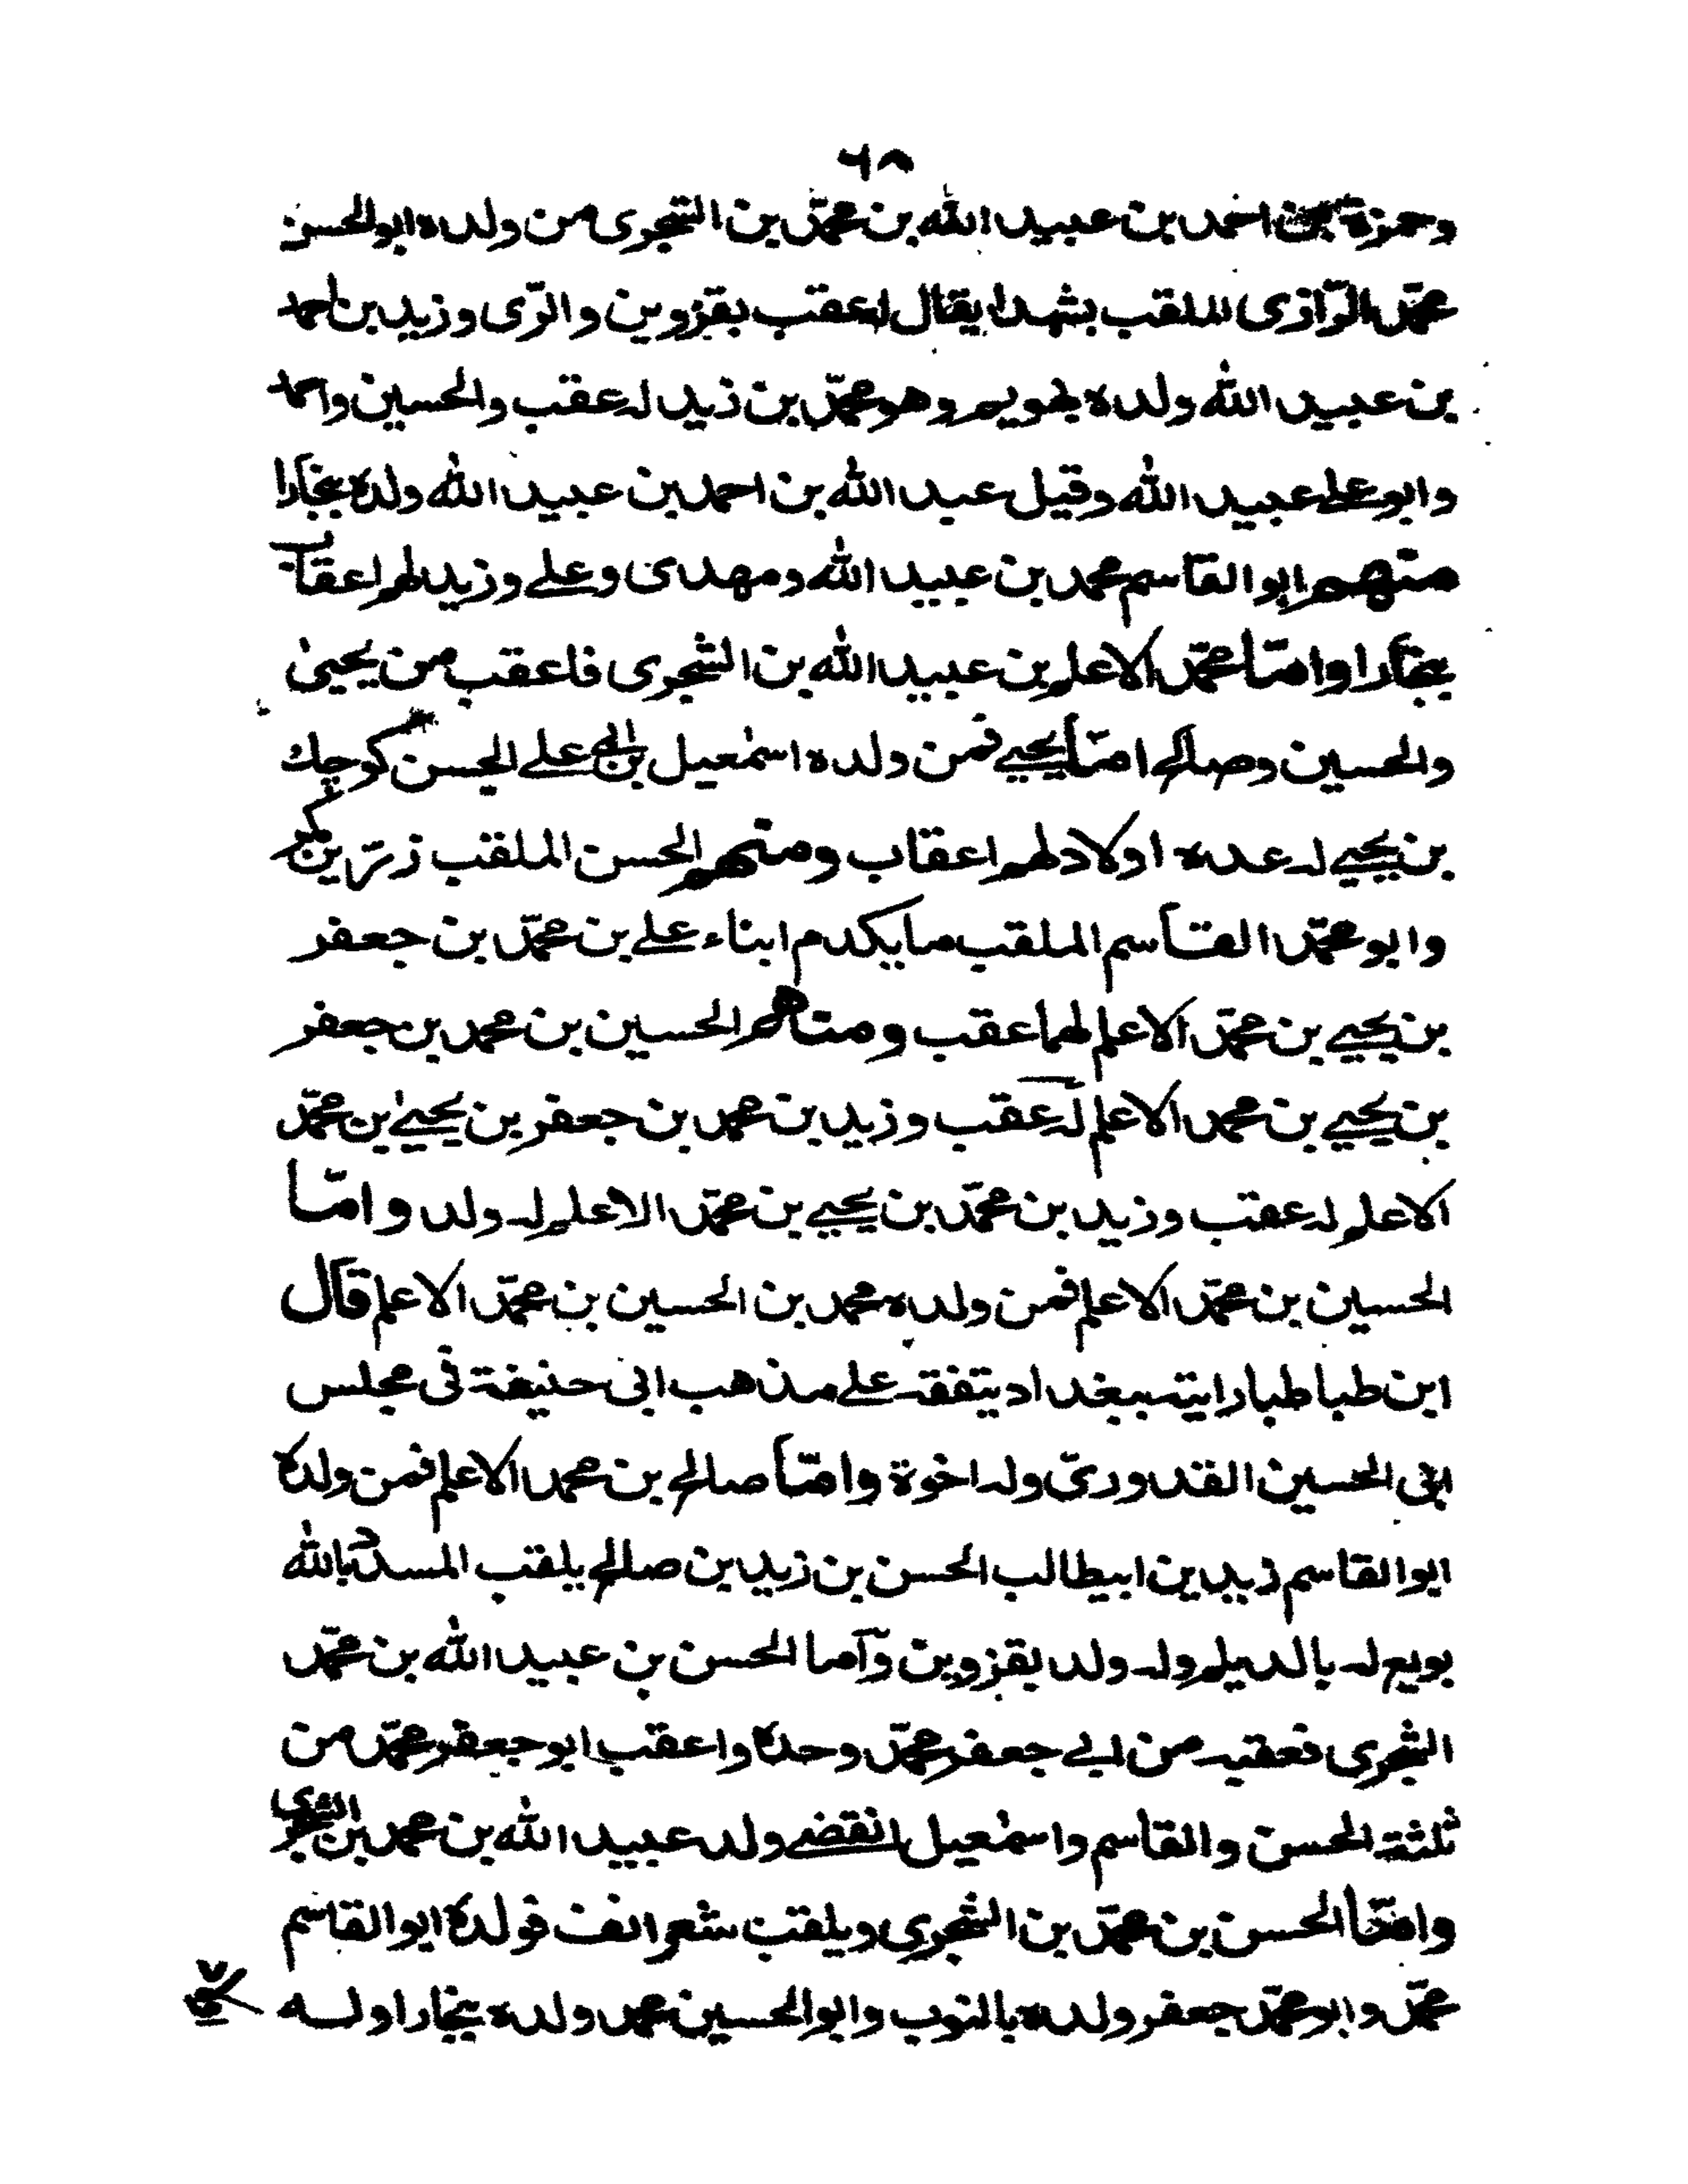 ٦٨
وحمزة بن احمد بن عبيد الله بن محمّد بن الشجرى من ولده ابو الحسن
محمّد الرّازى الملقب بشهدا يقال اعقب بقزوين والرّى وزيد بن احمد
بن عبيد الله ولده وهو محمّد بن زيد له عقب والحسين واحمد
وابو على عبيد الله وقيل عبد الله بن احمد بن عبيد الله ولده ببخارا
منهم ابو القاسم محمد بن عبيد الله ومهدى وعلے وزيد لهم اعقاب
ببخارا وامّا محمّد الاعلم بن عبيد الله بن الشجرى فاعقب من يحيىٰ
والحسين وصالح امّا يحيے فمن ولده اسمٰعيل بن ابى علے الحسن كوچك
بن يحيے له عدة اولاد لهم اعقاب ومنهم الحسن الملقب زرّين كمر
وابو محمّد القاسم الملقب مايكدم ابناء علے بن محمّد بن جعفر
بن يحيے بن محمّد الاعلم لهما عقب ومنهم الحسين بن محمد بن جعفر
بن يحيے بن محمد الاعلم له عقب وزيد بن محمد بن جعفر بن يحيیٰ بن محمّد
الاعلم له عقب وزيد بن محمّد بن يحيے بن محمّد الاعلم له ولد وامّا
الحسين بن محمّد الاعلم فمن ولده محمد بن الحسين بن محمّد الاعلم قال
ابن طباطبا رايته ببغداد يتفقه علے مذهب ابى حنيفة فى مجلس
ابى الحسين القدورىّ وله اخوة وامّا صالح بن محمد الاعلم فمن ولده
ابو القاسم زيد بن ابيطالب الحسن بن زيد بن صالح يلقب المسدد بالله
بويع له بالديلم وله ولد بقزوين وآما الحسن بن عبيد الله بن محمّد
الشجرى فعقبه من ابے جعفر محمّد وحده واعقب ابو جعفر محمّد من
ثلثة الحسن والقاسم واسمٰعيل انقضے ولد عبيد الله بن محمد بن الشجرى
وامّا الحسن بن محمّد بن الشجرى ويلقب شعر انف فولده ابو القاسم
محمّد وابو محمّد جعفر ولده بالنوب وابو الحسين محمد ولده ببخارا وله